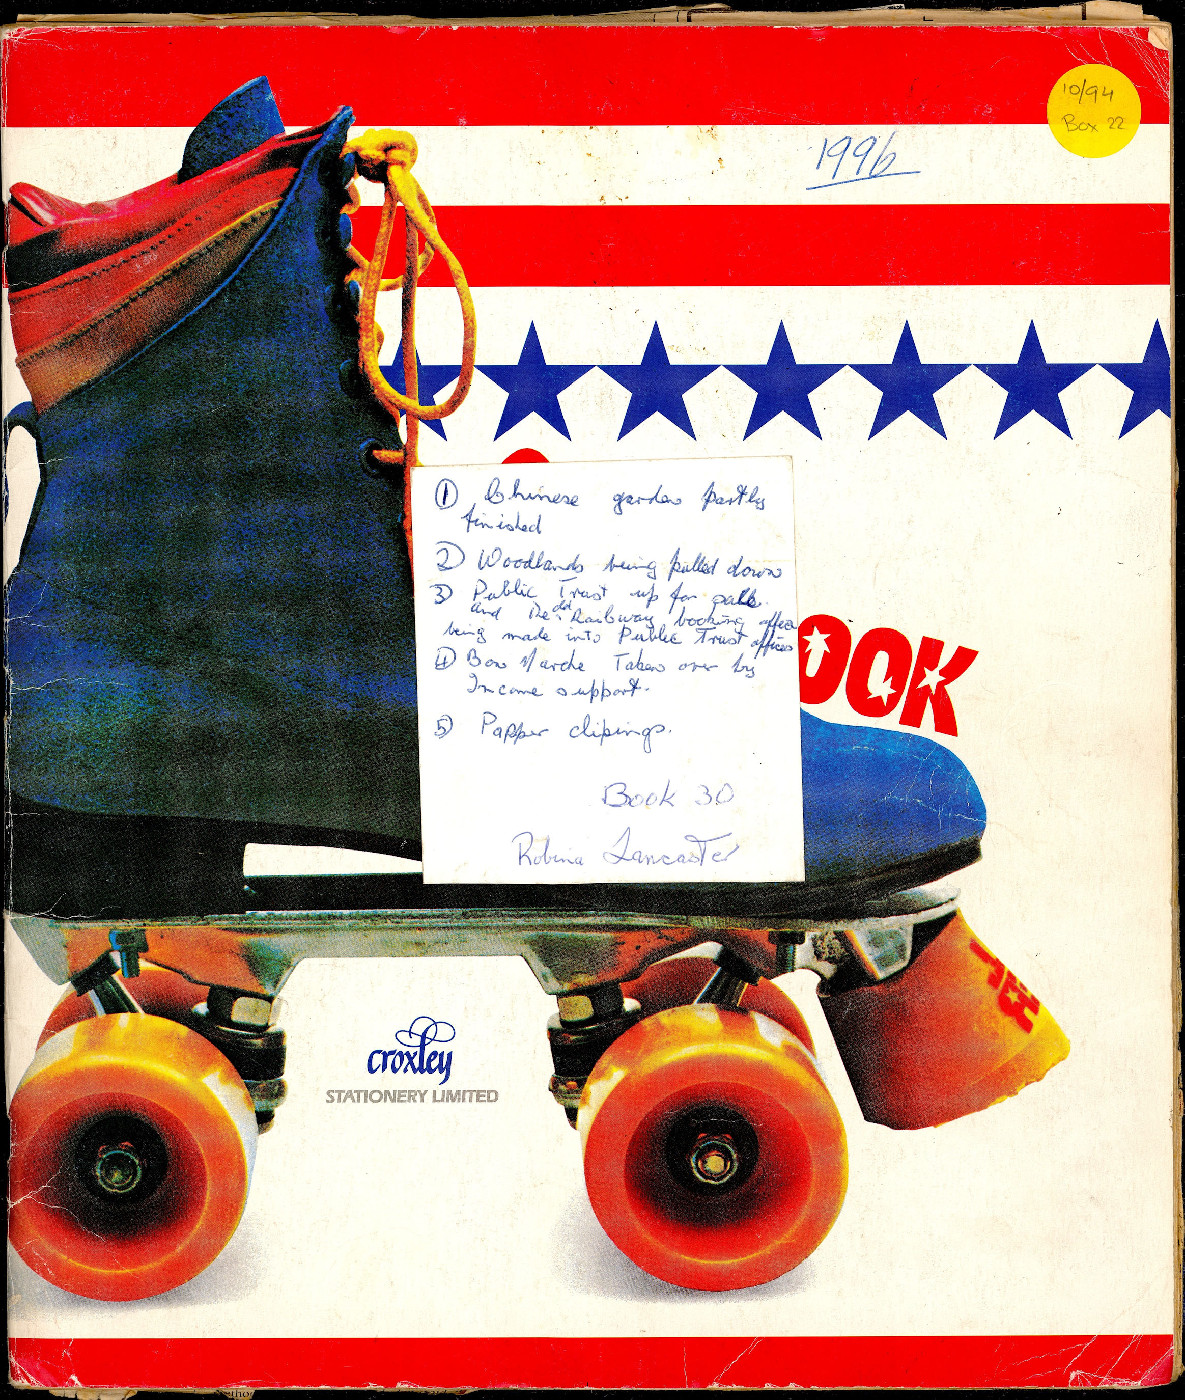 10/94
Box 22
1996
① Chinese garden partly
finished
② Woodlands being pulled down
③ Public Trust up for sale.
and Railway booking office
being made into Public Trust offices
④ Bon Marche Taken over by
Income support.
⑤ Papper clipings.
Book 30
Robina Lancaster
OOK
croxley
STATIONERY LIMITED